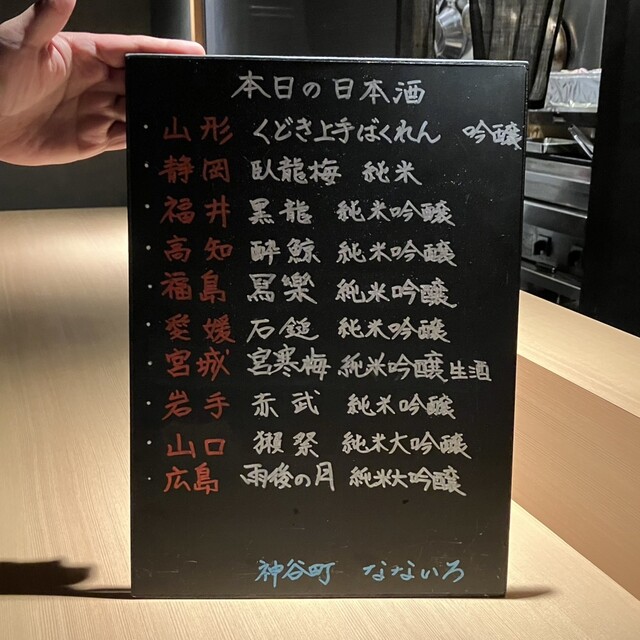 本日の日本酒
・山形 くどき上手ばくれん 吟醸
・静岡 臥龍梅 純米
・福井 黒龍 純米吟醸
・高知 酔鯨 純米吟醸
・福島 写樂 純米吟醸
・愛媛 石鎚 純米吟醸
・宮城 宮寒梅 純米吟醸生酒
・岩手 赤武 純米吟醸
・山口 獺祭 純米大吟醸
・広島 雨後の月 純米大吟醸
神谷町 なないろ